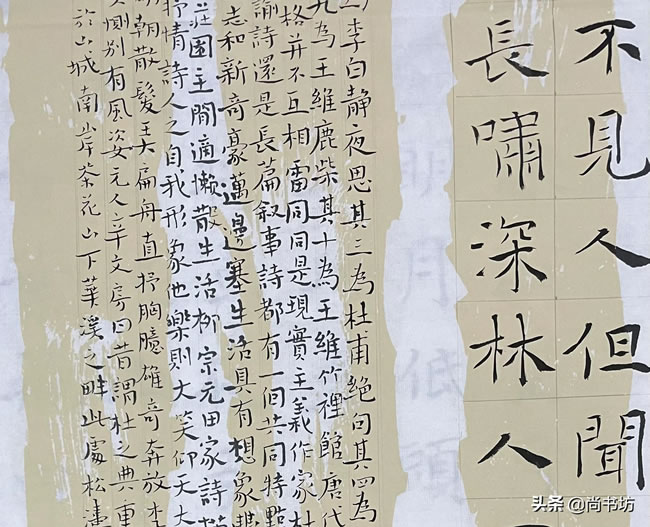 不見人但聞
長嘯深林人
明月低頭
李白静夜思其三為杜甫絕句其四為
九為王維鹿柴其十為王維竹裡館唐代
格并不互相雷同同是現實主義作家杜
諭詩還是長篇叙事詩都有一個共同特點
志和新奇豪邁邊塞生活具有想象
莊園主閒適懶散生活柳宗元田家詩
抒情詩人之自我形象他樂則大笑仰天大
朝散髮美扁舟直抒胸臆雄奇奔放李
惻别有風姿元人辛文房曰昔謂杜之典重
於山城南岸茶花山下華溪之畔此處松濤
头条@尚书坊